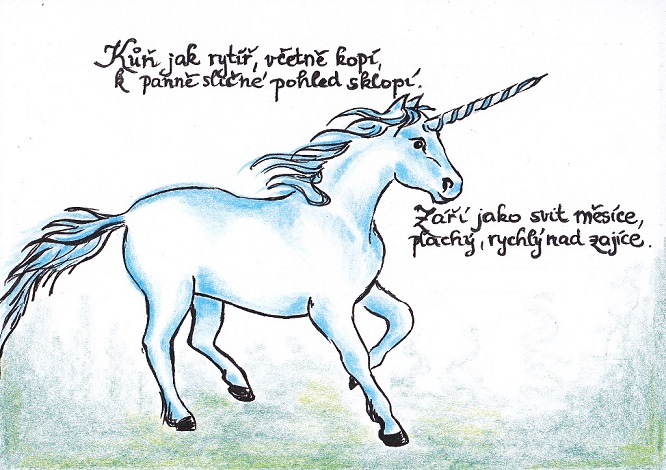 Kůň jak rytíř, včetně kopí,
k panně sličné pohled sklopí.
Září jako svit měsíce,
plachý, rychlý nad zajíce.